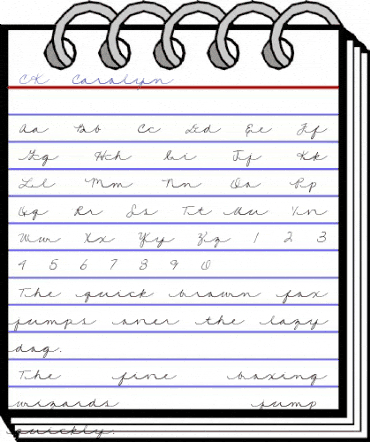 CK Carolyn
Aa Bb Cc Dd Ee Ff
Gg Hh Ii Jj Kk
Ll Mm Nn Oo Pp
Qq Rr Ss Tt Uu Vv
Ww Xx Yy Zz 1 2 3
4 5 6 7 8 9 0
The quick brown fox
jumps over the lazy
dog.
The five boxing
wizards jump
quickly.